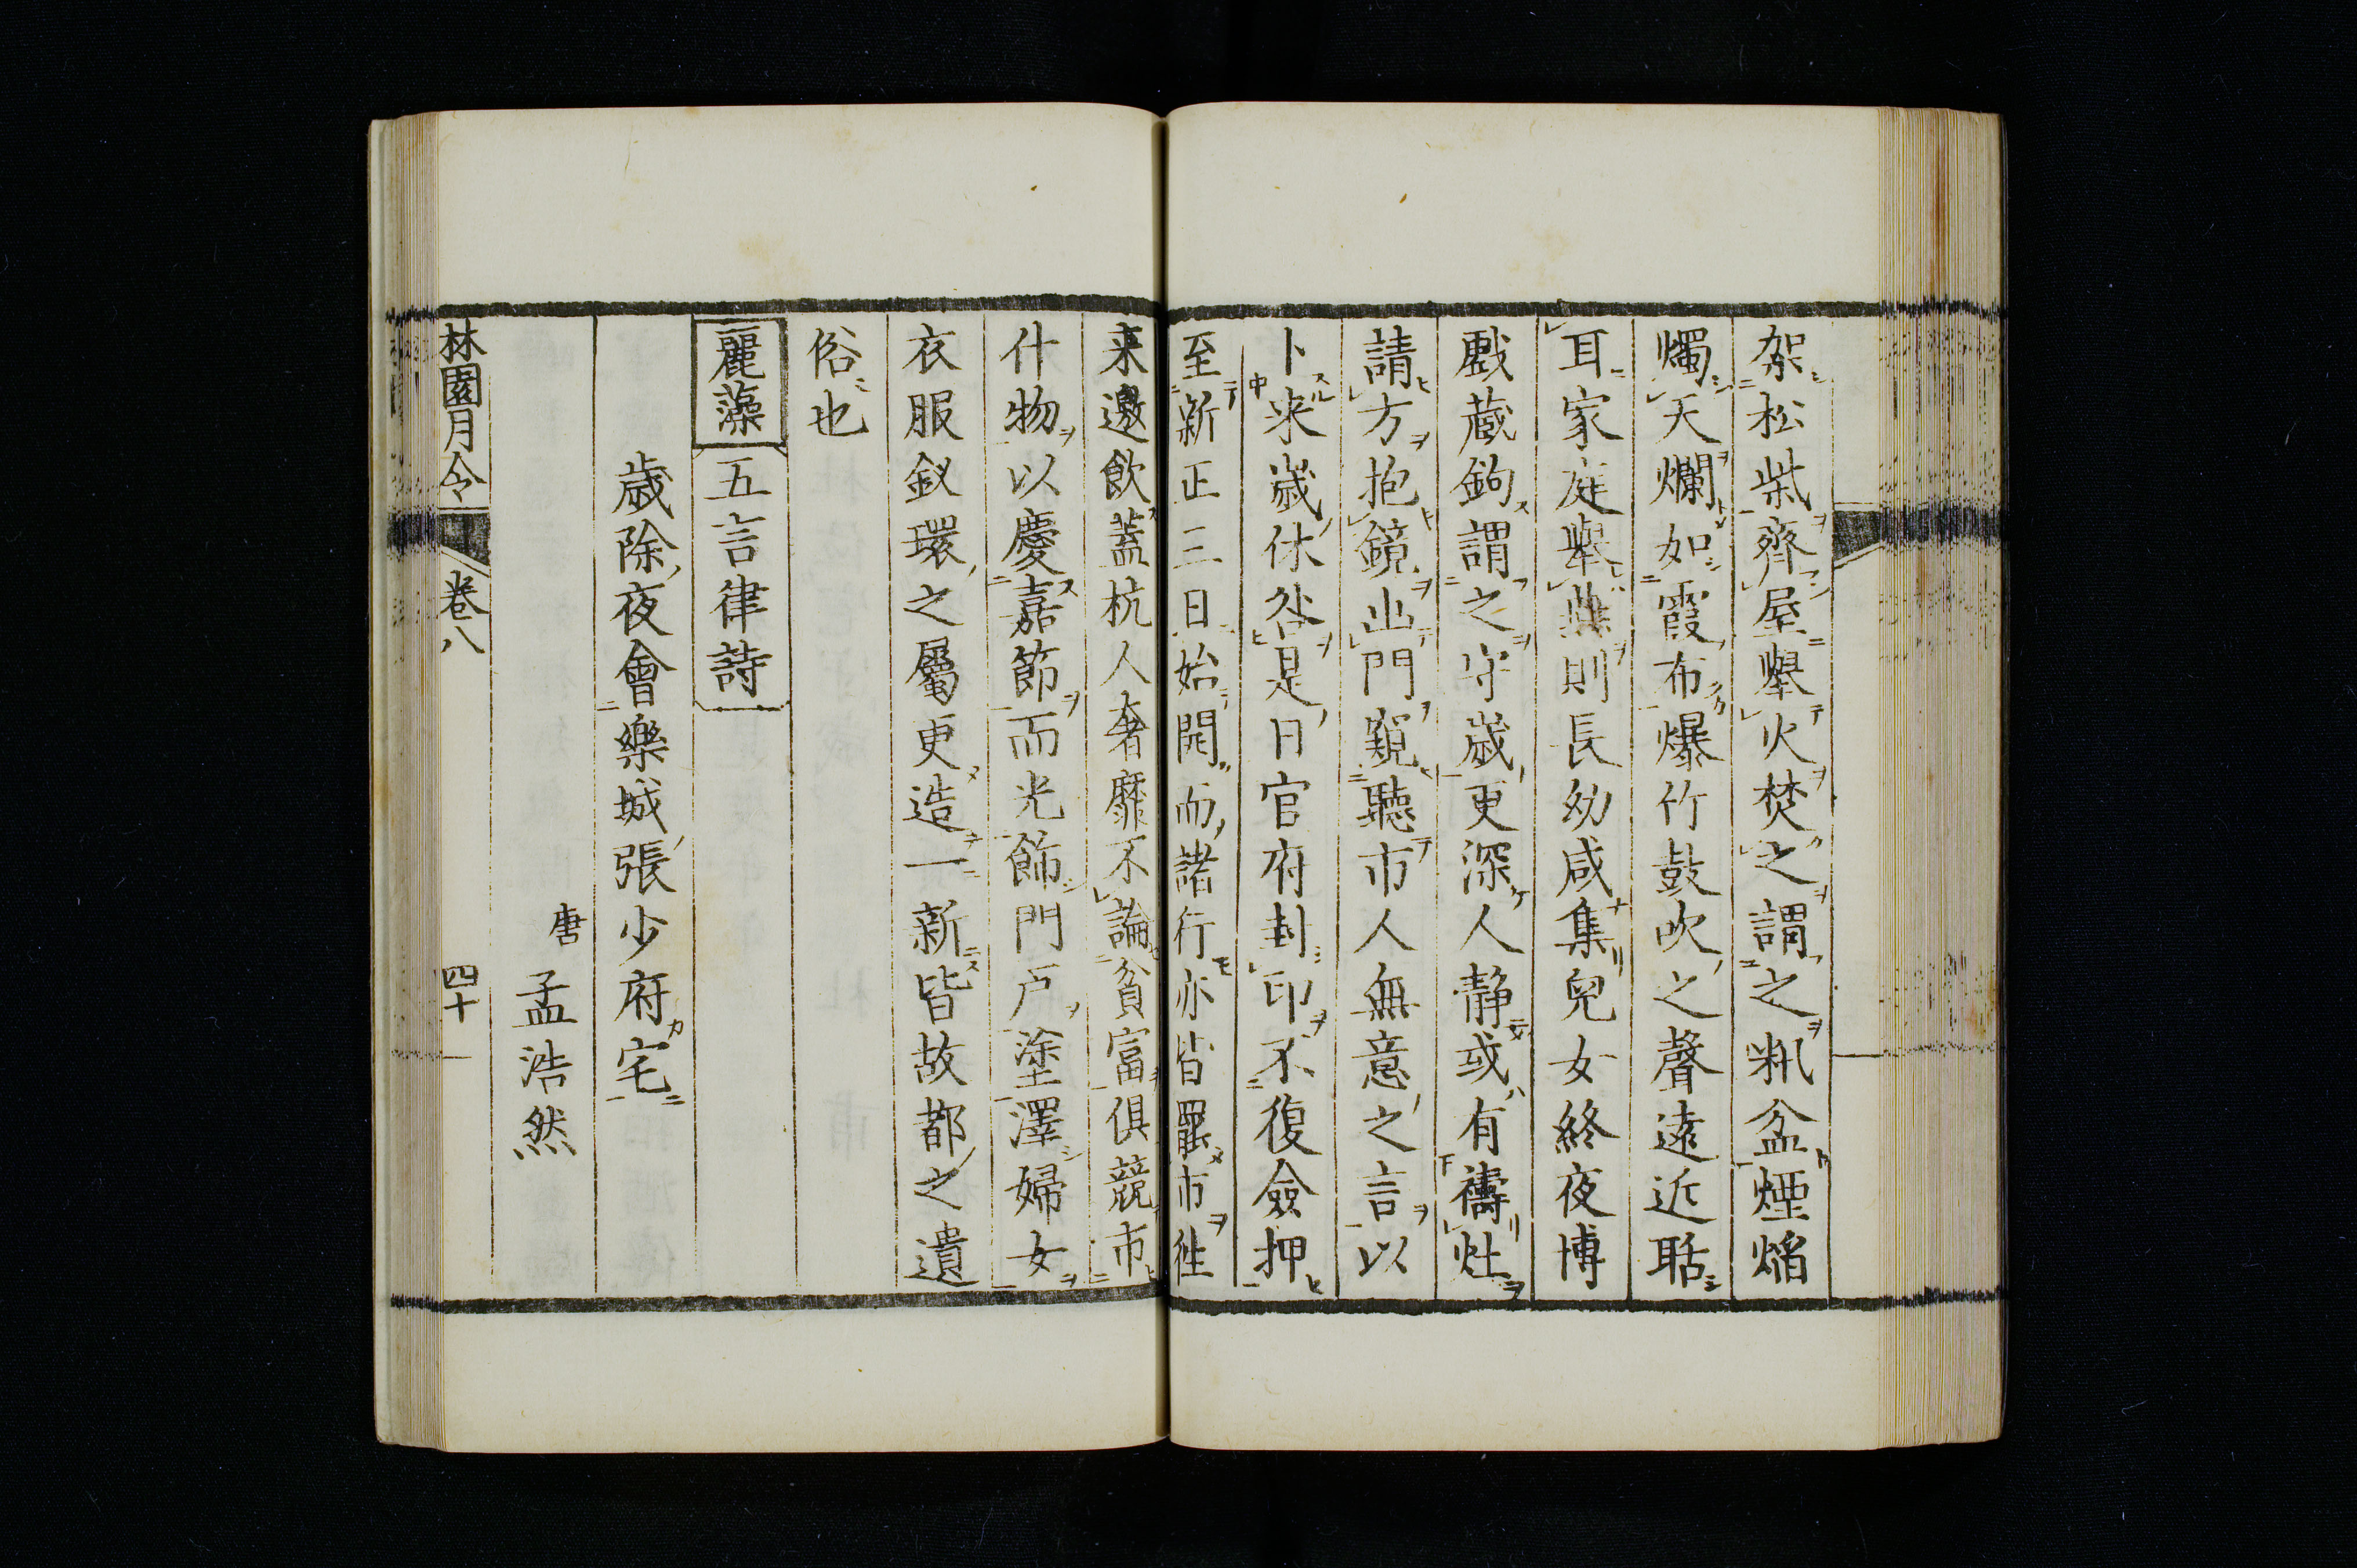 架松柴齊屋舉火焚之謂之籸盆煙焰
燭天爛如霞布爆竹鼓吹之聲遠近聒
耳家庭舉燕則長幼咸集兒女終夜博
戲藏鉤謂之守歲更深人靜或有禱灶
請方抱鏡出門窺聽市人無意之言以
卜来歲休咎是日官府封印不復僉押
至新正三日始開而諸行亦皆罷市往
来邀飲蓋杭人奢靡不論貧富俱競市
什物以慶嘉節而光飾門戶塗澤婦女
衣服釵環之屬更造一新皆故都之遺
俗也
麗藻 五言律詩
歲除夜會樂城張少府宅
唐 孟浩然
林園月令 卷八 四十